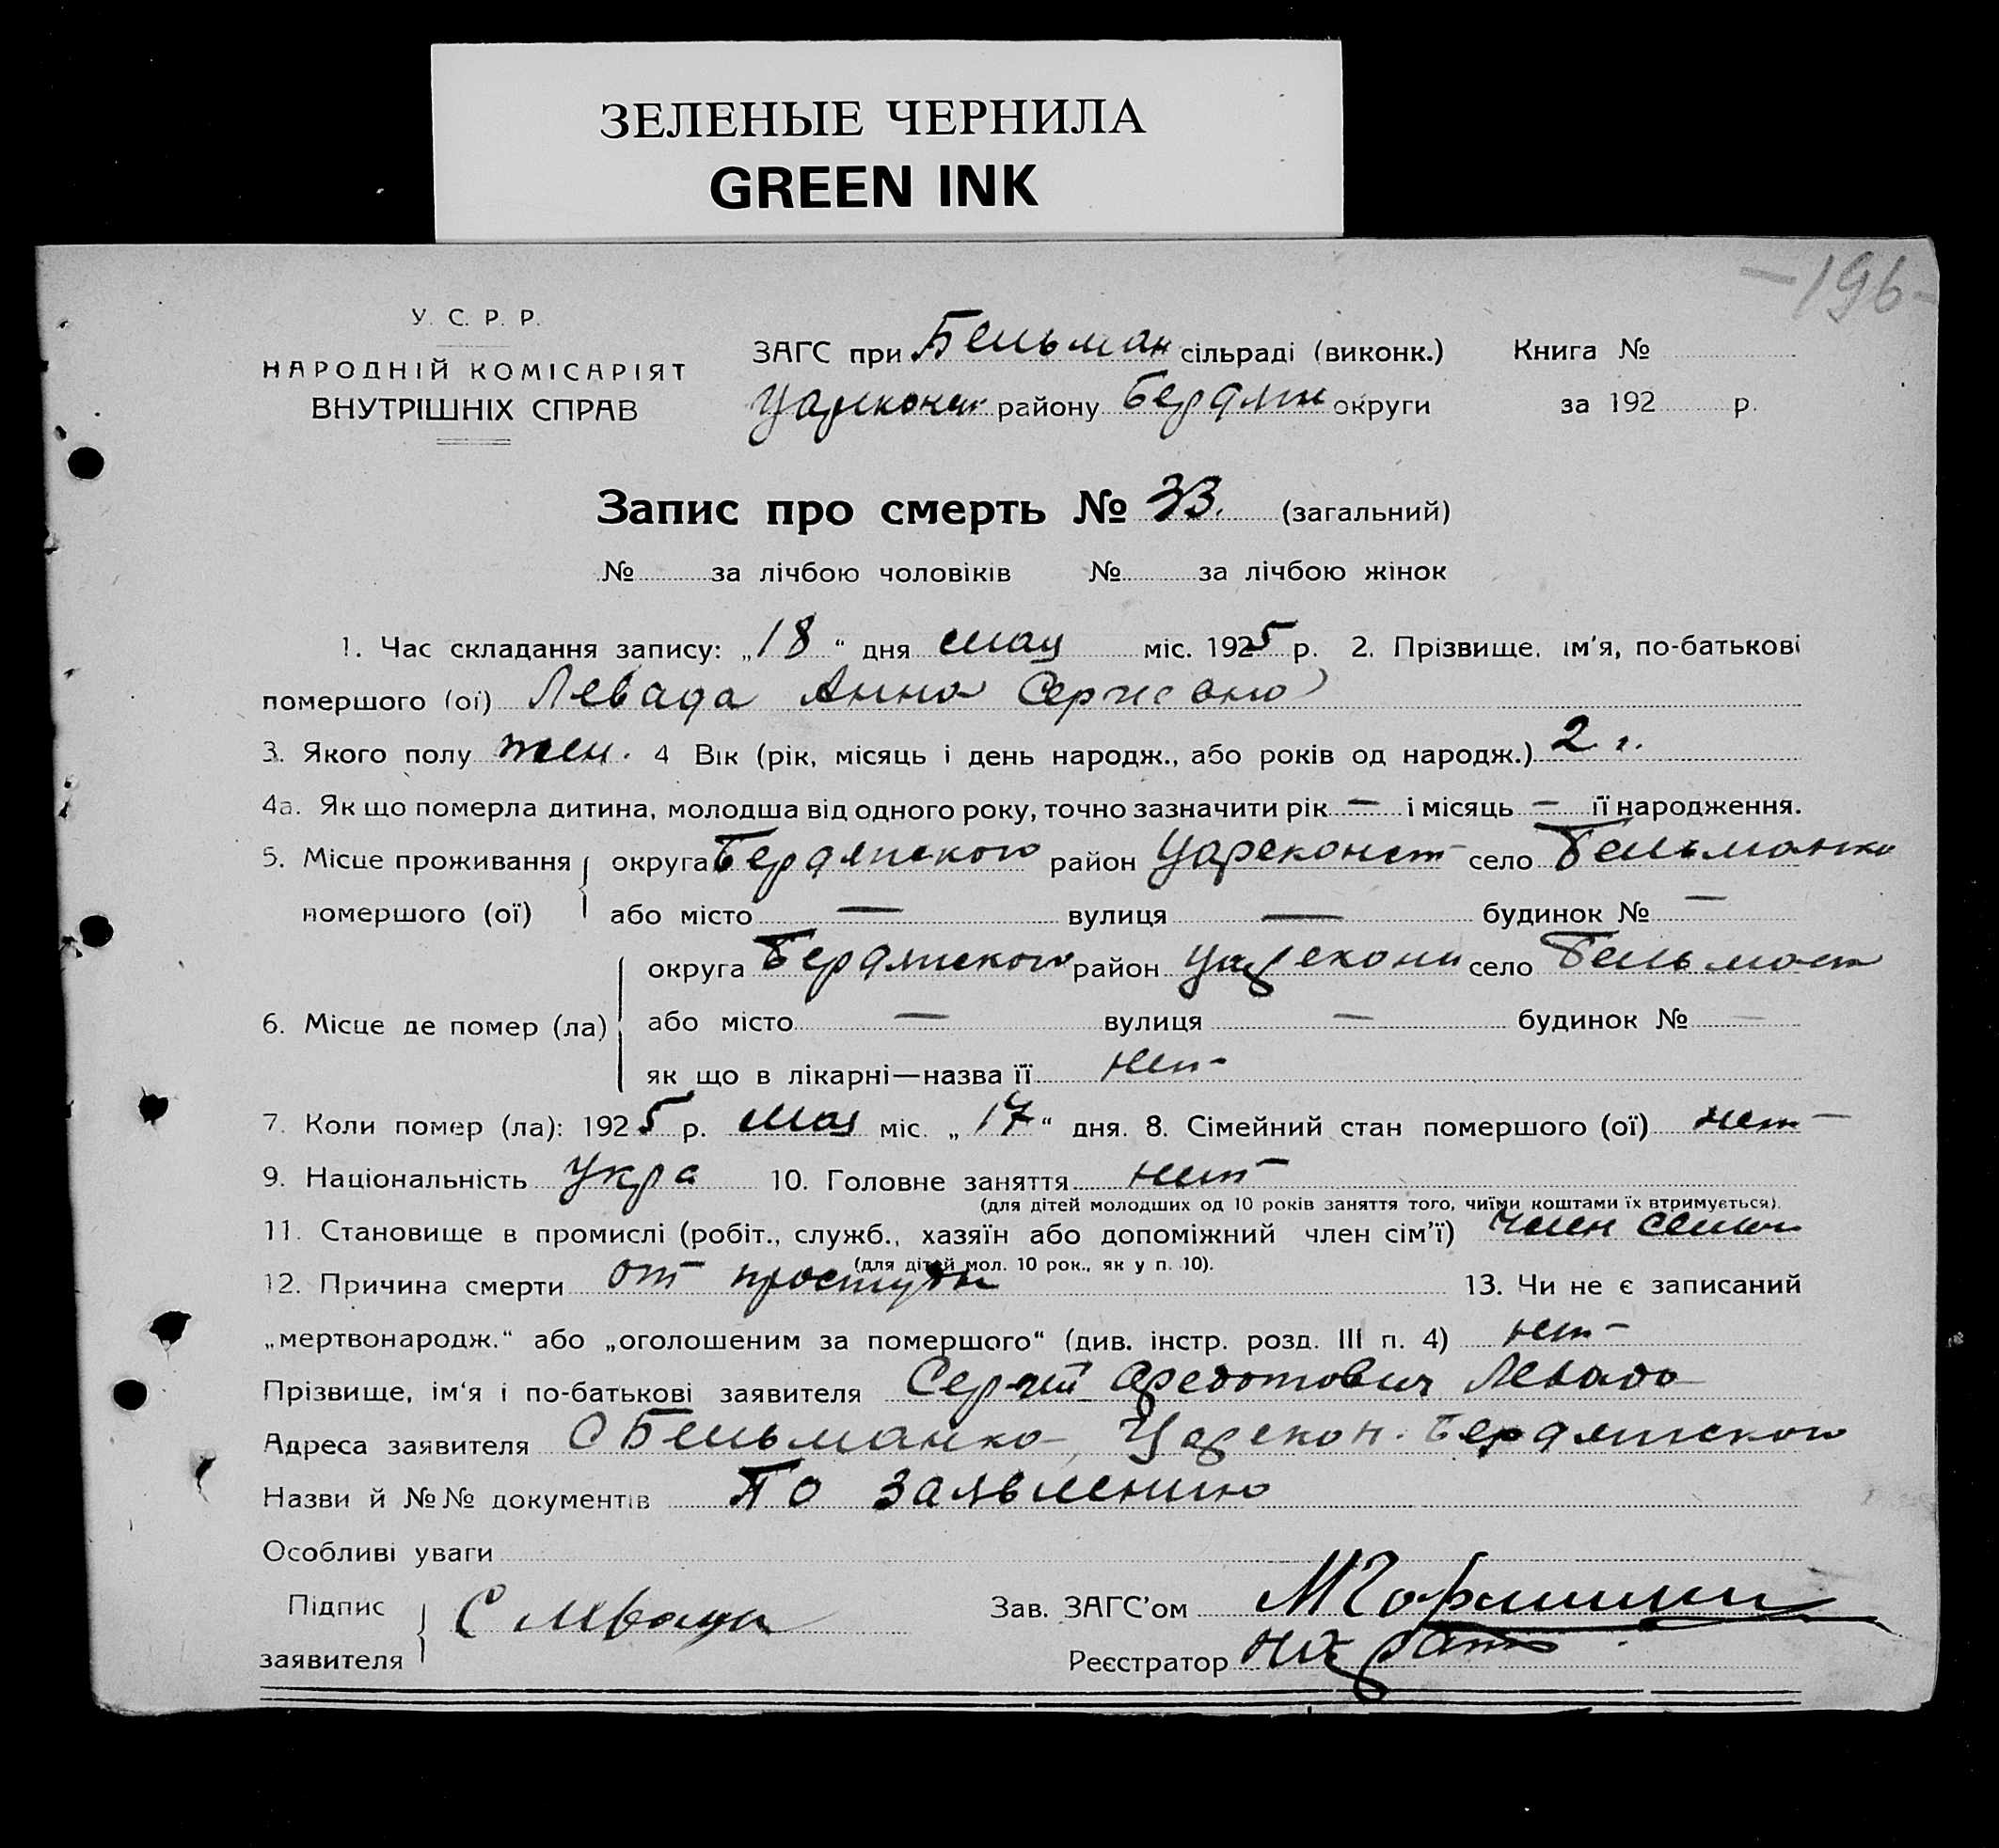 ЗЕЛЕНЫЕ ЧЕРНИЛА
GREEN INK
-196-
У. С. Р. Р.
НАРОДНІЙ КОМІСАРІЯТ
ВНУТРІШНІХ СПРАВ
ЗАГС при Бельман сільраді (виконк.) Книга №
Царекон району Бердян округи за 192 р.
Запис про смерть № 33. (загальний)
№ за лічбою чоловіків № за лічбою жінок
1. Час складання запису: „18“ дня мая міс. 1925 р. 2. Прізвище, ім'я, по-батькові
помершого (ої) Левада Анна Сергиевна
3. Якого полу жен. 4 Вік (рік, місяць і день народж., або років од народж.) 2 г.
4а. Як що померла дитина, молодша від одного року, точно зазначити рік — і місяць — її народження.
5. Місце проживання округа Бердянского район Цареконст село Бельманка
помершого (ої) або місто — вулиця — будинок № —
округа Бердянского район Царекон село Бельман
6. Місце де помер (ла) або місто — вулиця — будинок № —
як що в лікарні—назва її нет
7. Коли помер (ла): 1925 р. мая міс. „17“ дня. 8. Сімейний стан помершого (ої) нет
9. Національність Укра 10. Головне заняття нет
(для дітей молодших од 10 років заняття того, чиїми коштами їх втримується).
11. Становище в промислі (робіт., служб., хазяїн або допоміжний член сім'ї) член семьи
(для дітей мол. 10 рок., як у п. 10).
12. Причина смерти от простуды 13. Чи не є записаний
„мертвонародж.“ або „оголошеним за помершого“ (див. інстр. розд. III п. 4) нет
Прізвище, ім'я і по-батькові заявителя Сергей Федотович Левада
Адреса заявителя С Бельманка, Царекон. Бердянского
Назви й №№ документів По заявлению
Особливі уваги
Підпис С Левада Зав. ЗАГС'ом
заявителя Реєстратор